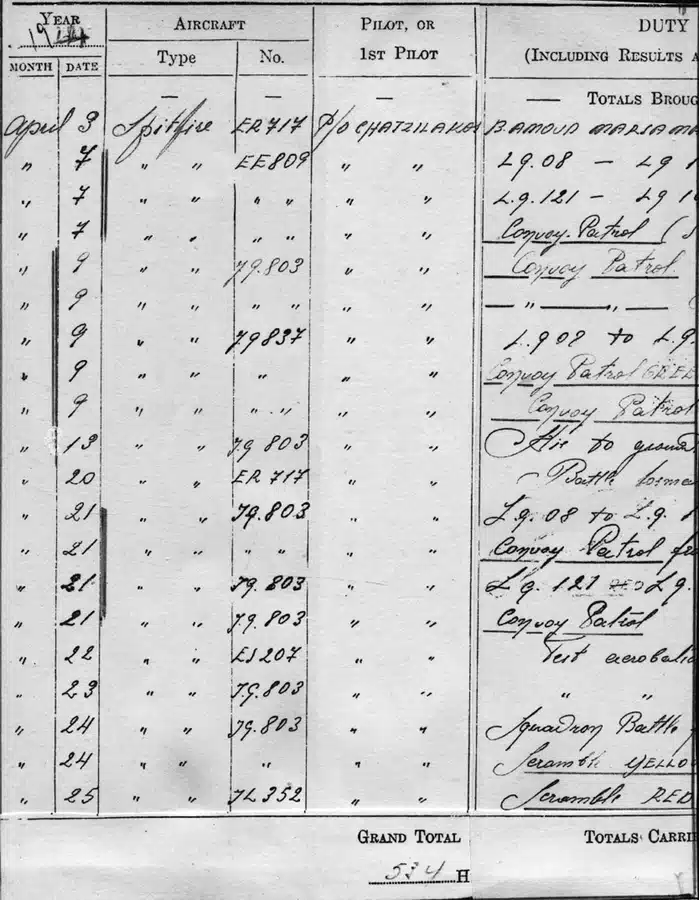 YEAR AIRCRAFT PILOT, OR DUTY
1944 1ST PILOT (INCLUDING RESULTS A
MONTH DATE Type No.
— — — — TOTALS BROUG
April 3 Spitfire ER717 P/O CHATZILAKOS B.AMOUD MARSA MA
" 7 " " EE809 " " L.g.08 — L.g 1
" 7 " " " " " " L.g.121 — L.g 1
" 7 " " " " " " Convoy Patrol (
" 9 " " J.g.803 " " Convoy Patrol.
" 9 " " " " " " — " — " — (
" 9 " " J.g837 " " L.g 08 to L.g.
" 9 " " " " " Convoy Patrol GREE
" 9 " " " " " " Convoy Patrol
" 13 " " J.g 803 " " Air to ground
" 20 " " ER 717 " " Battle forma
" 21 " " Jg.803 " " L.g. 08 to L.g. 1
" 21 " " " " " " Convoy Patrol
" 21 " " Jg 803 " " L.g. 121 L.g.
" 21 " " J.g.803 " " Convoy Patrol
" 22 " " ES207 " " Test aerobatic
" 23 " " J.G.803 " " " "
" 24 " " Jg.803 " " Squadron Battle
" 24 " " " " " Scramble YELLO
" 25 " " JL352 " " Scramble RED
GRAND TOTAL TOTALS CARRI
534 H